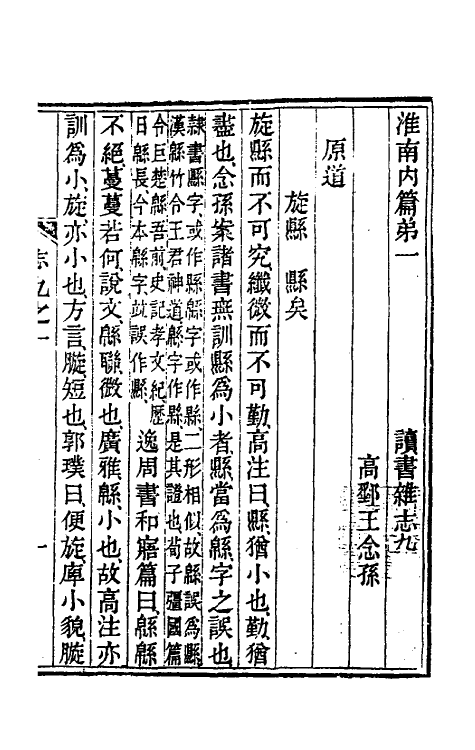 淮南内篇弟一　讀書雜志九
高郵王念孫
原道
旋縣　縣矣
旋縣而不可究、纖微而不可勤、高注曰、縣、猶小也、勤、猶
盡也、念孫案諸書無訓縣爲小者、縣當爲緜字之誤也、
隸書縣字、或作縣、緜字或作緜、二形相似、故緜誤爲縣、
漢緜竹令王君神道、緜字作緜、是其證也、荀子彊國篇
今巨楚緜吾前、史記孝文紀、歷
日緜長、今本緜字竝誤作縣、
逸周書和寤篇曰、緜緜
不絕、蔓蔓若何、說文、緜、聯微也、廣雅、緜、小也、故高注亦
訓爲小、旋、亦小也、方言、短也、郭璞曰、便旋、庳小貌、
志九之一
一